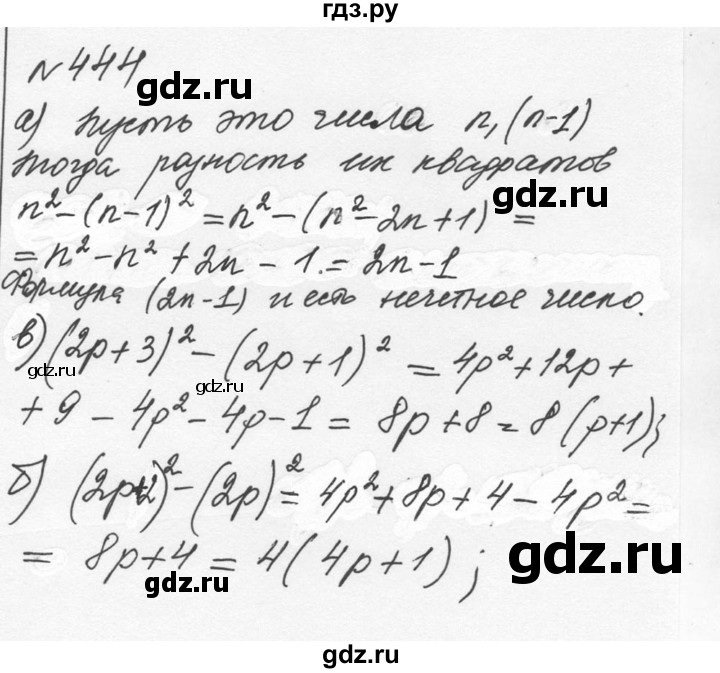 гдз.ру
№444
gdz.ru
а) Пусть это числа n, (n-1)
тогда разность их квадратов
gdz.ru
n² - (n-1)² = n² - (n² - 2n + 1) =
= n² - n² + 2n - 1. = 2n - 1
Формула (2n-1) и есть нечетное число.
gdz.ru
в) (2p+3)² - (2p+1)² = 4p² + 12p +
gdz.ru
gdz.ru
+ 9 - 4p² - 4p - 1 = 8p + 8 = 8(p+1);
gdz.ru
б) (2p+2)² - (2p)² = 4p² + 8p + 4 - 4p² =
= 8p + 4 = 4(4p+1);
gdz.ru
gdz.ru
gdz.ru